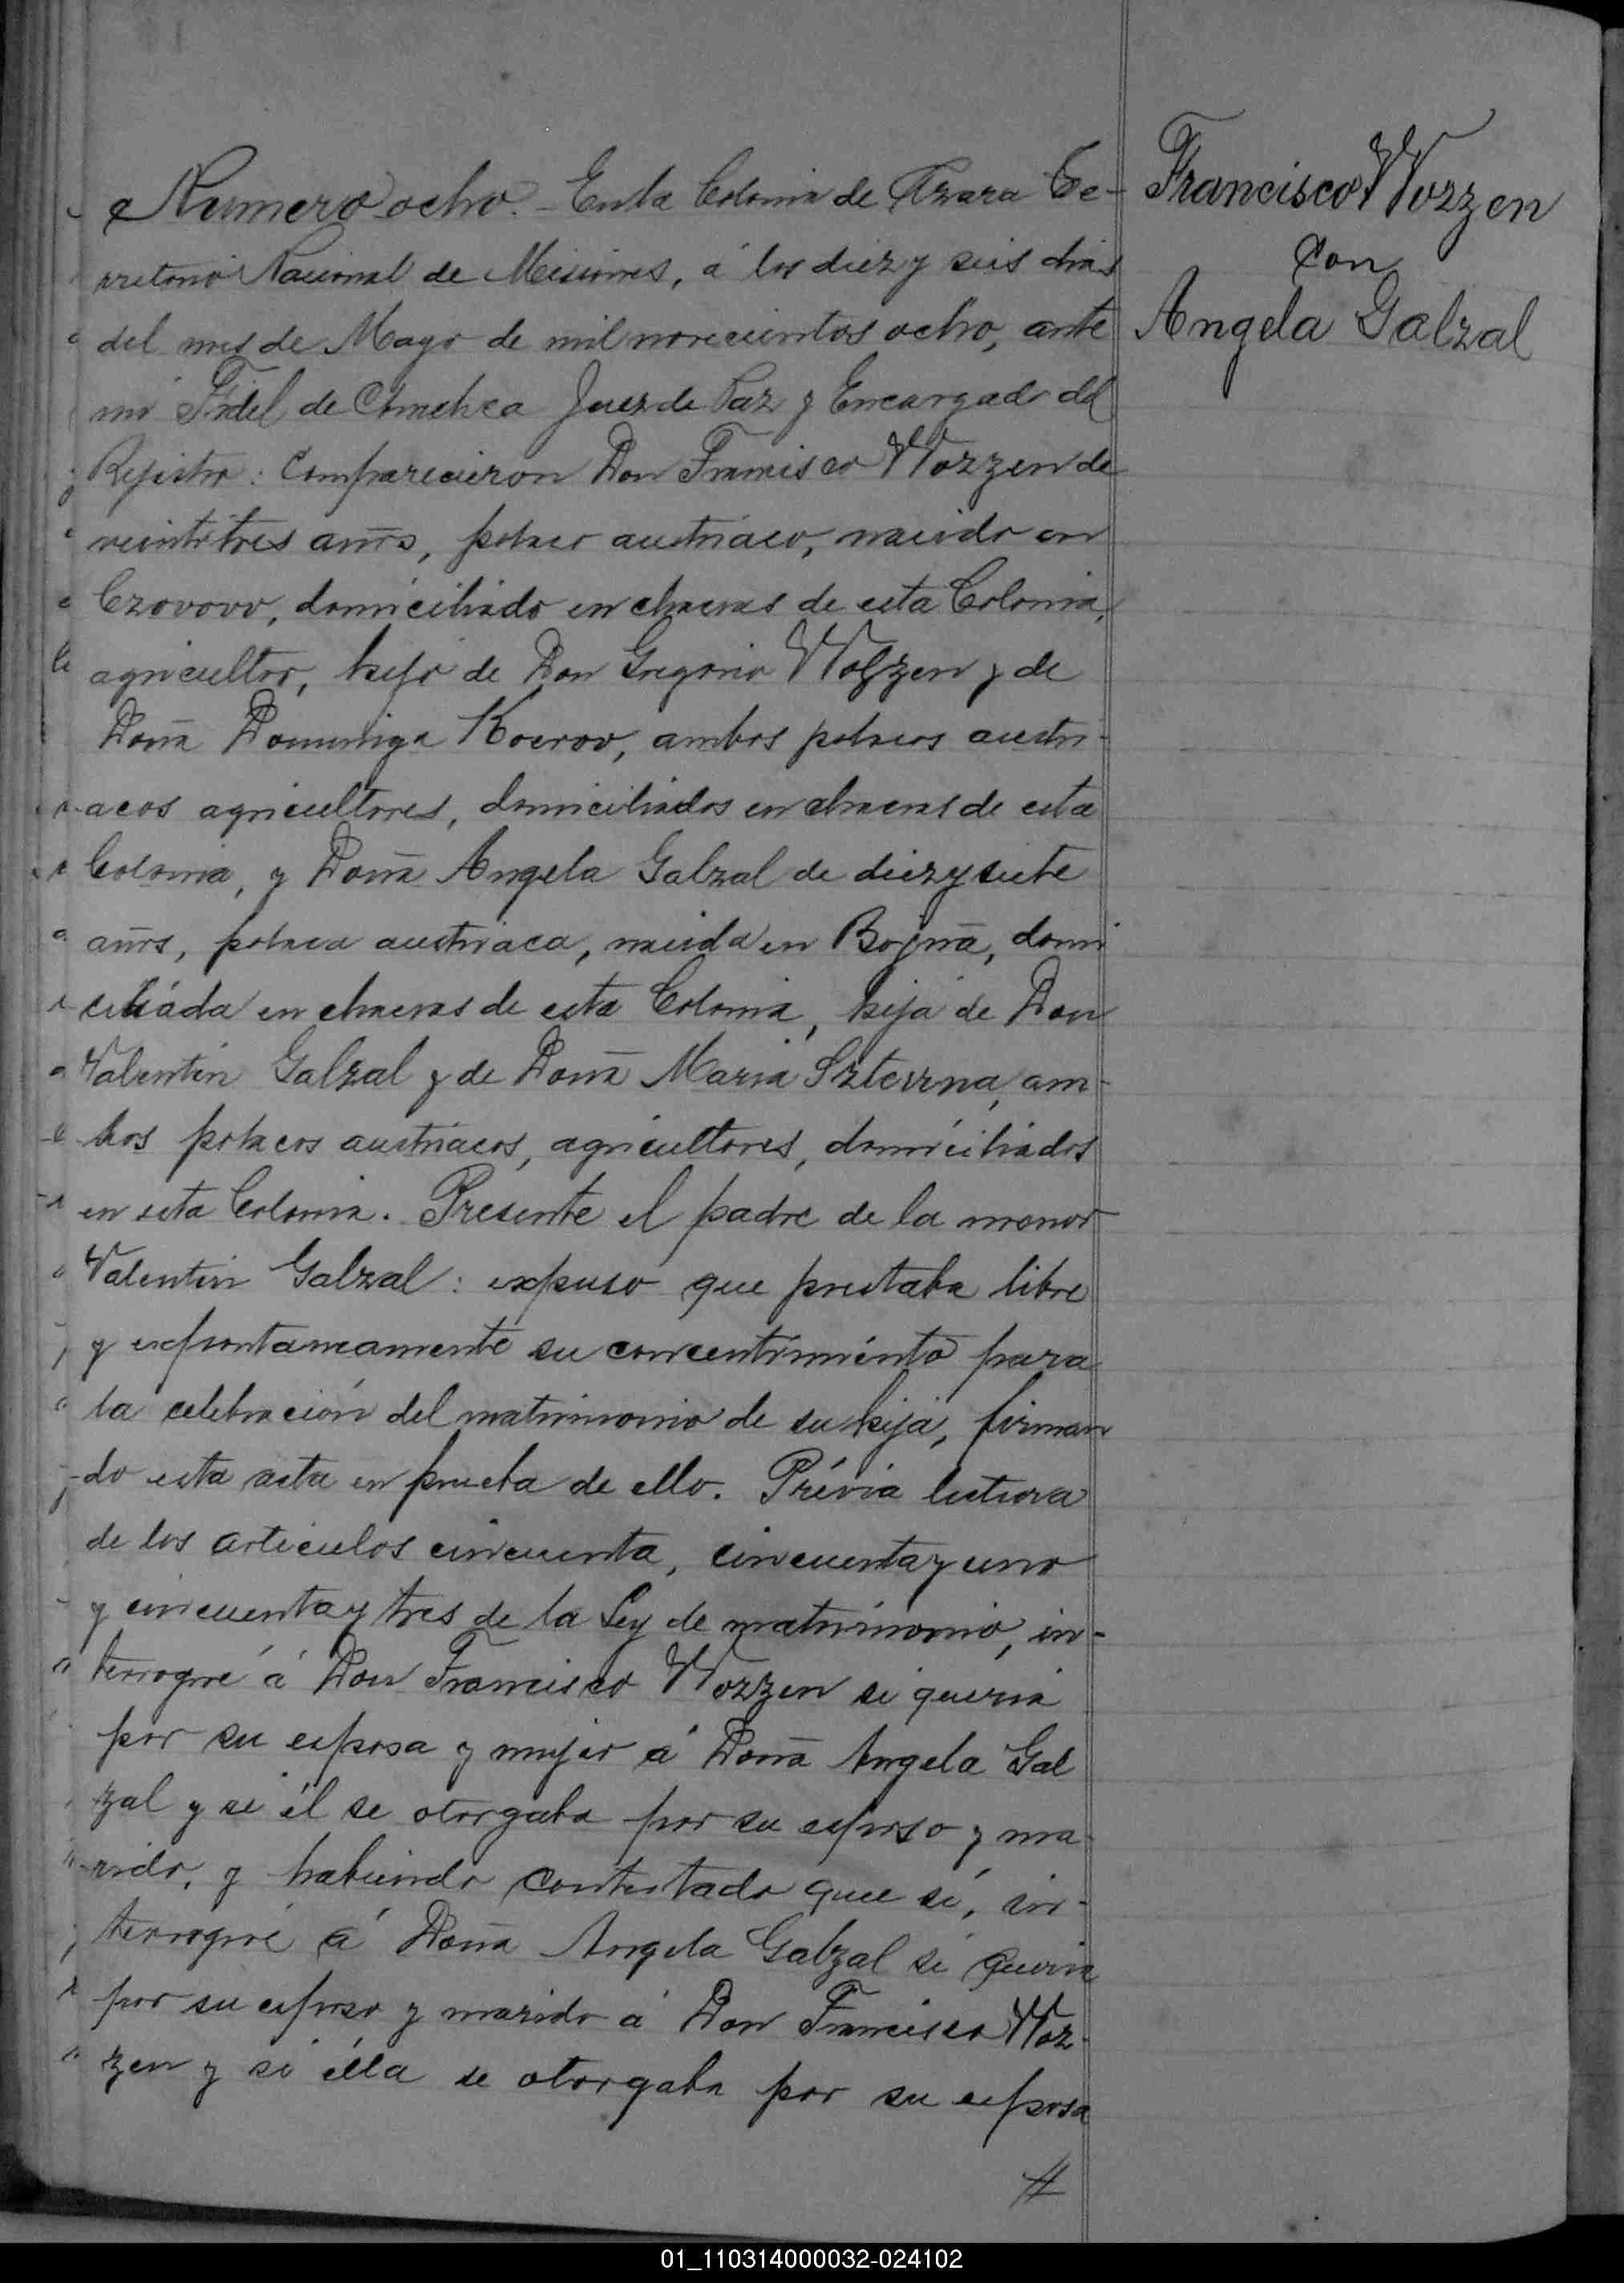 Numero ocho. - En la Colonia de Azara Te-
rritorio Nacional de Misiones, á los diez y seis dias
del mes de Mayo de mil novecientos ocho, ante
mi Fidel de Juez de Paz y Encargado del
Rejistro: Comparecieron Don Francisco Wozzen de
veintitres años, polaco austriaco, nacido en
Czovovo, domiciliado en chacras de esta Colonia,
agricultor, hijo de Don Gregorio Wozzen y de
Doña Dominiga Kocrov, ambos polacos austri-
acos agricultores, domiciliados en chacras de esta
Colonia, y Doña Angela Galzal de diez y siete
años, polaca austriaca, nacida en domi
ciliada en chacras de esta Colonia, hija de Don
Valentin Galzal y de Doña Maria am-
bos polacos austriacos, agricultores, domiciliados
en esta Colonia. Presente el padre de la menor
Valentin Galzal: expuso que prestaba libre
y expontaneamente su concentimiento para
la celebracion del matrimonio de su hija, firman
do esta acta en prueba de ello. Prévia lectura
de los articulos cincuenta, cincuenta y uno
y cincuenta y tres de la Ley de matrimonio, in-
terrogué á Don Francisco Wozzen si queria
por su esposa y mujer á Doña Angela Gal
zal y si él se otorgaba por su esposo y ma-
rido, y habiendo contestado que sí, in-
terrogué á Doña Angela Galzal si queria
por su esposo y marido á Don Francisco Woz-
zen y si élla se otorgaba por su esposa
#
Francisco Wozzen
con
Angela Galzal
01_110314000032-024102